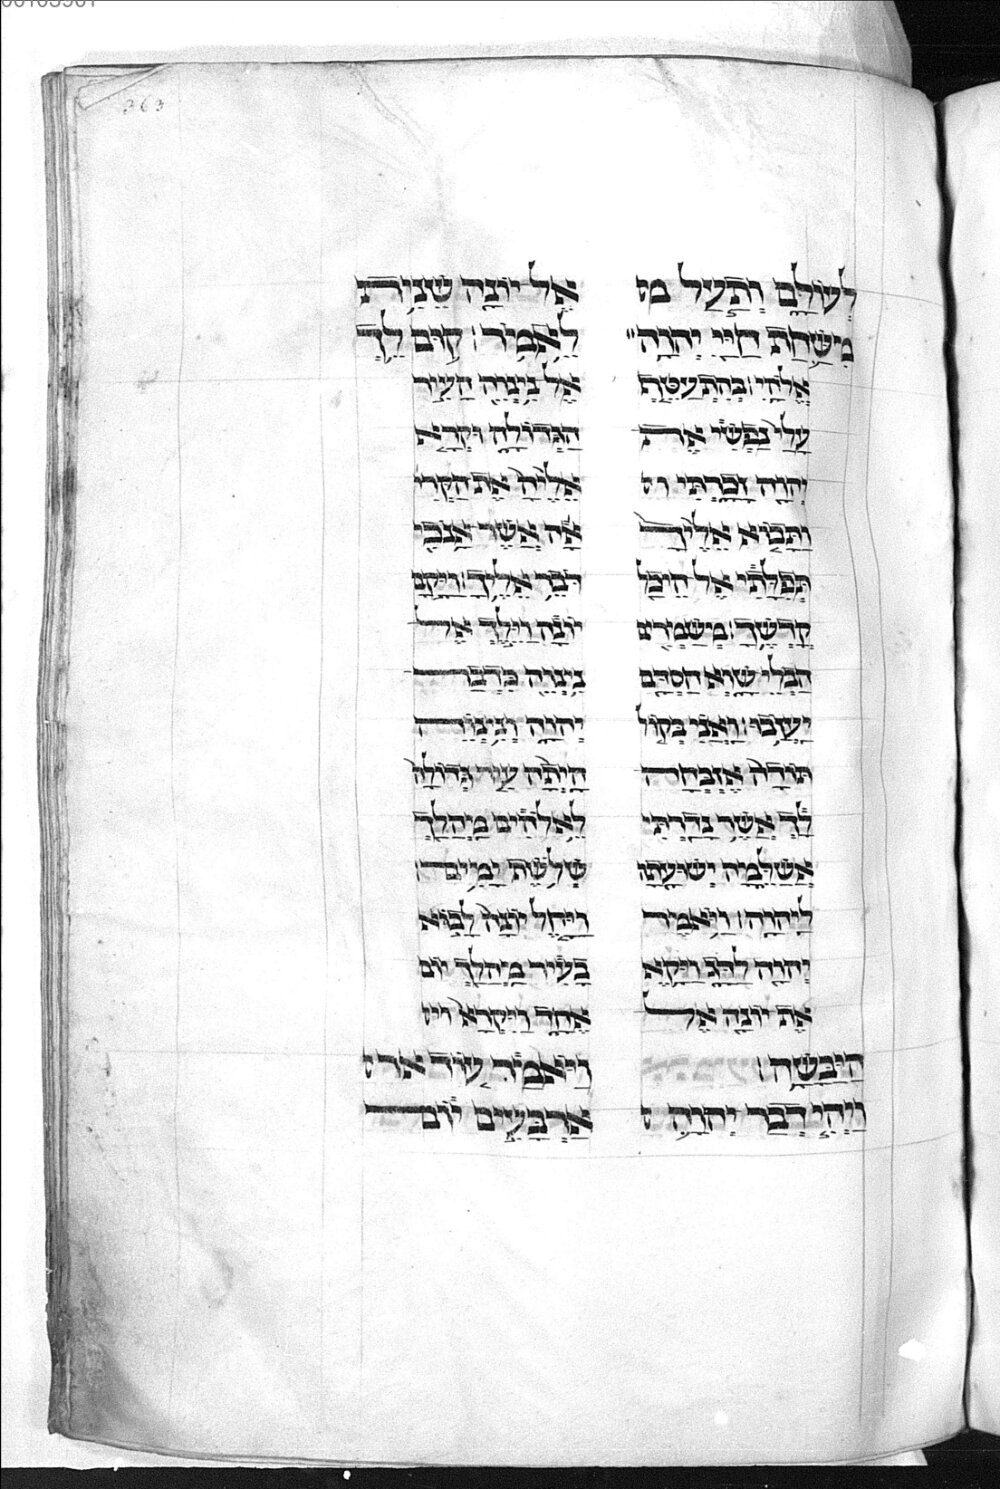 363
לְעוֹלָם וַתַּעַל מ
מִשַּׁחַת חַיַּי יְהוָה
אֱלֹהָי׃ בְּהִתְעַטֵּף
עָלַי נַפְשִׁי אֶת
יְהוָה זָכָרְתִּי ו
וַתָּבוֹא אֵלֶיךָ
תְּפִלָּתִי אֶל הֵיכַל
קָדְשֶׁךָ׃ מְשַׁמְּרִים
הַבְלֵי שָׁוְא חַסְדָּם
יַעֲזֹבוּ׃ וַאֲנִי בְּקוֹל
תּוֹדָה אֶזְבְּחָה
לָּךְ אֲשֶׁר נָדַרְתִּי
אֲשַׁלֵּמָה יְשׁוּעָתָה
לַיהוָה׃ וַיֹּאמֶר
יְהוָה לַדָּג וַיָּקֵא
אֶת יוֹנָה אֶל
הַיַּבָּשָׁה׃
וַיְהִי דְבַר יְהוָה
אֶל יוֹנָה שֵׁנִית
לֵאמֹר׃ קוּם לֵךְ
אֶל נִינְוֵה הָעִיר
הַגְּדוֹלָה וּקְרָא
אֵלֶיהָ אֶת הַקְּרִי
אָה אֲשֶׁר אָנֹכִי
דֹּבֵר אֵלֶיךָ׃ וַיָּקָם
יוֹנָה וַיֵּלֶךְ אֶל
נִינְוֵה כִּדְבַר
יְהוָה וְנִינְוֵה
הָיְתָה עִיר גְּדוֹלָה
לֵאלֹהִים מַהֲלַךְ
שְׁלֹשֶׁת יָמִים
וַיָּחֶל יוֹנָה לָבוֹא
בָעִיר מַהֲלַךְ יוֹם
אֶחָד וַיִּקְרָא וי
וַיֹּאמַר עוֹד אר
אַרְבָּעִים יוֹם